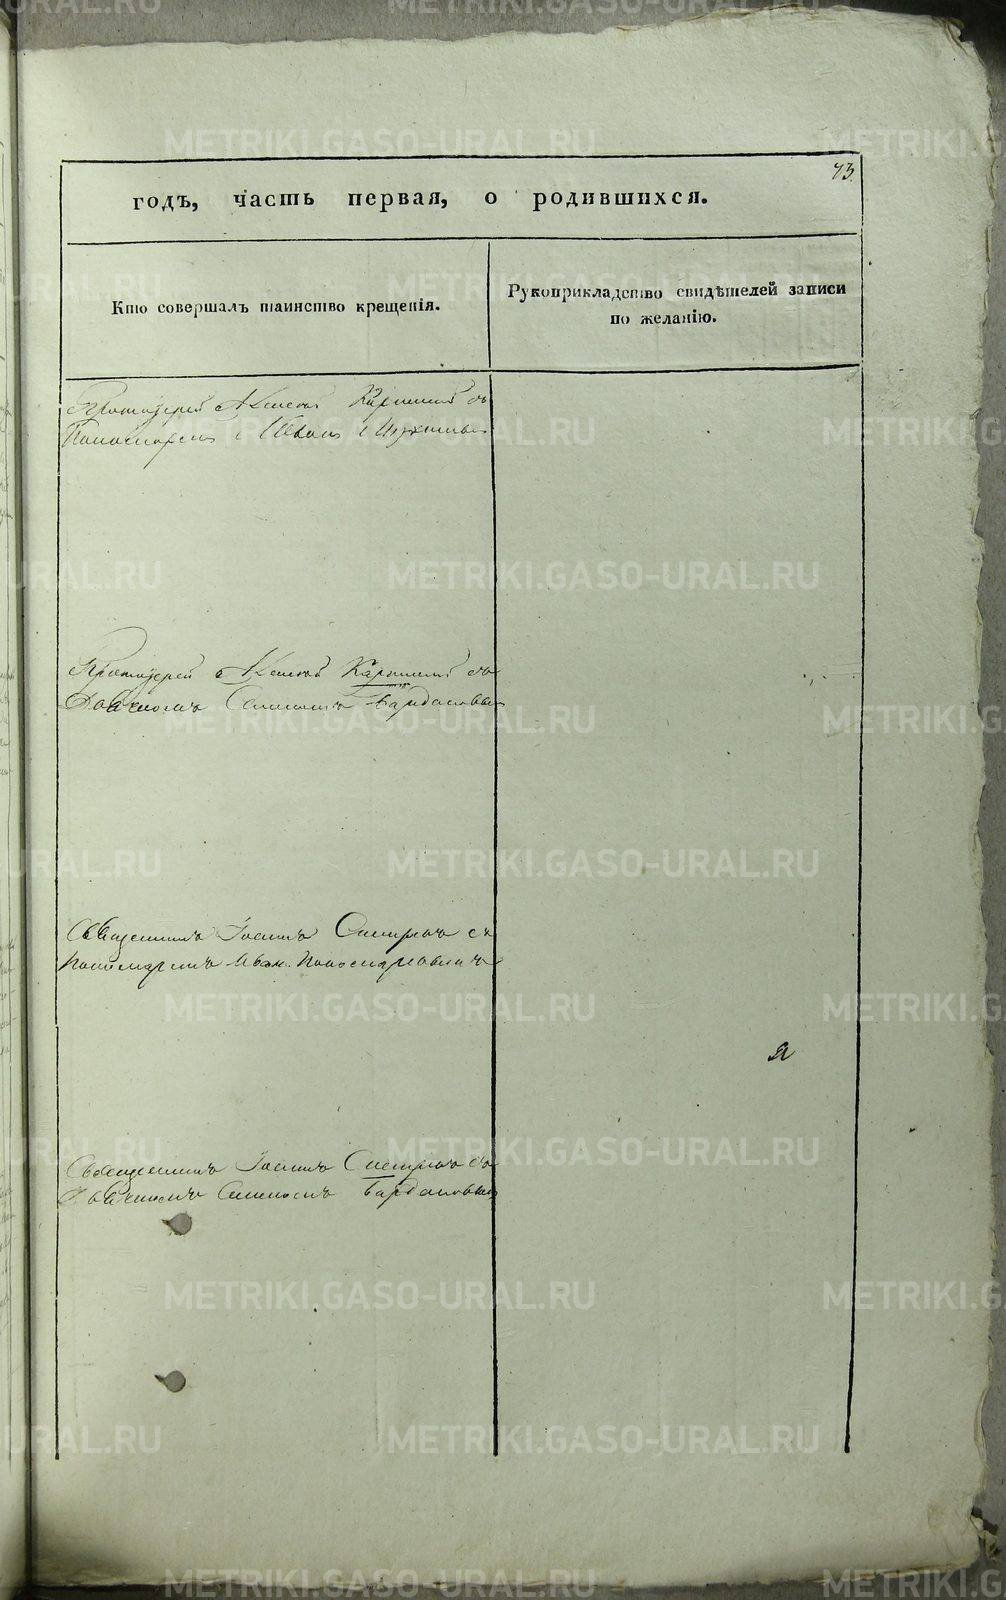 73.
годъ, часть первая, о родившихся.
Кто совершалъ таинство крещенія.
Рукоприкладство свидѣтелей записи
по желанію.
Протоіерей Алексѣй Карпинскій съ
Пономаремъ Иваномъ
Протоіерей Алексѣй Карпинскій съ
Дьячкомъ Семеномъ
Священникъ Іоаннъ съ
Пономаремъ Иван. Пономаревымъ
Я
Священникъ Іоаннъ съ
Дьячкомъ Семеномъ
METRIKI.GASO-URAL.RU